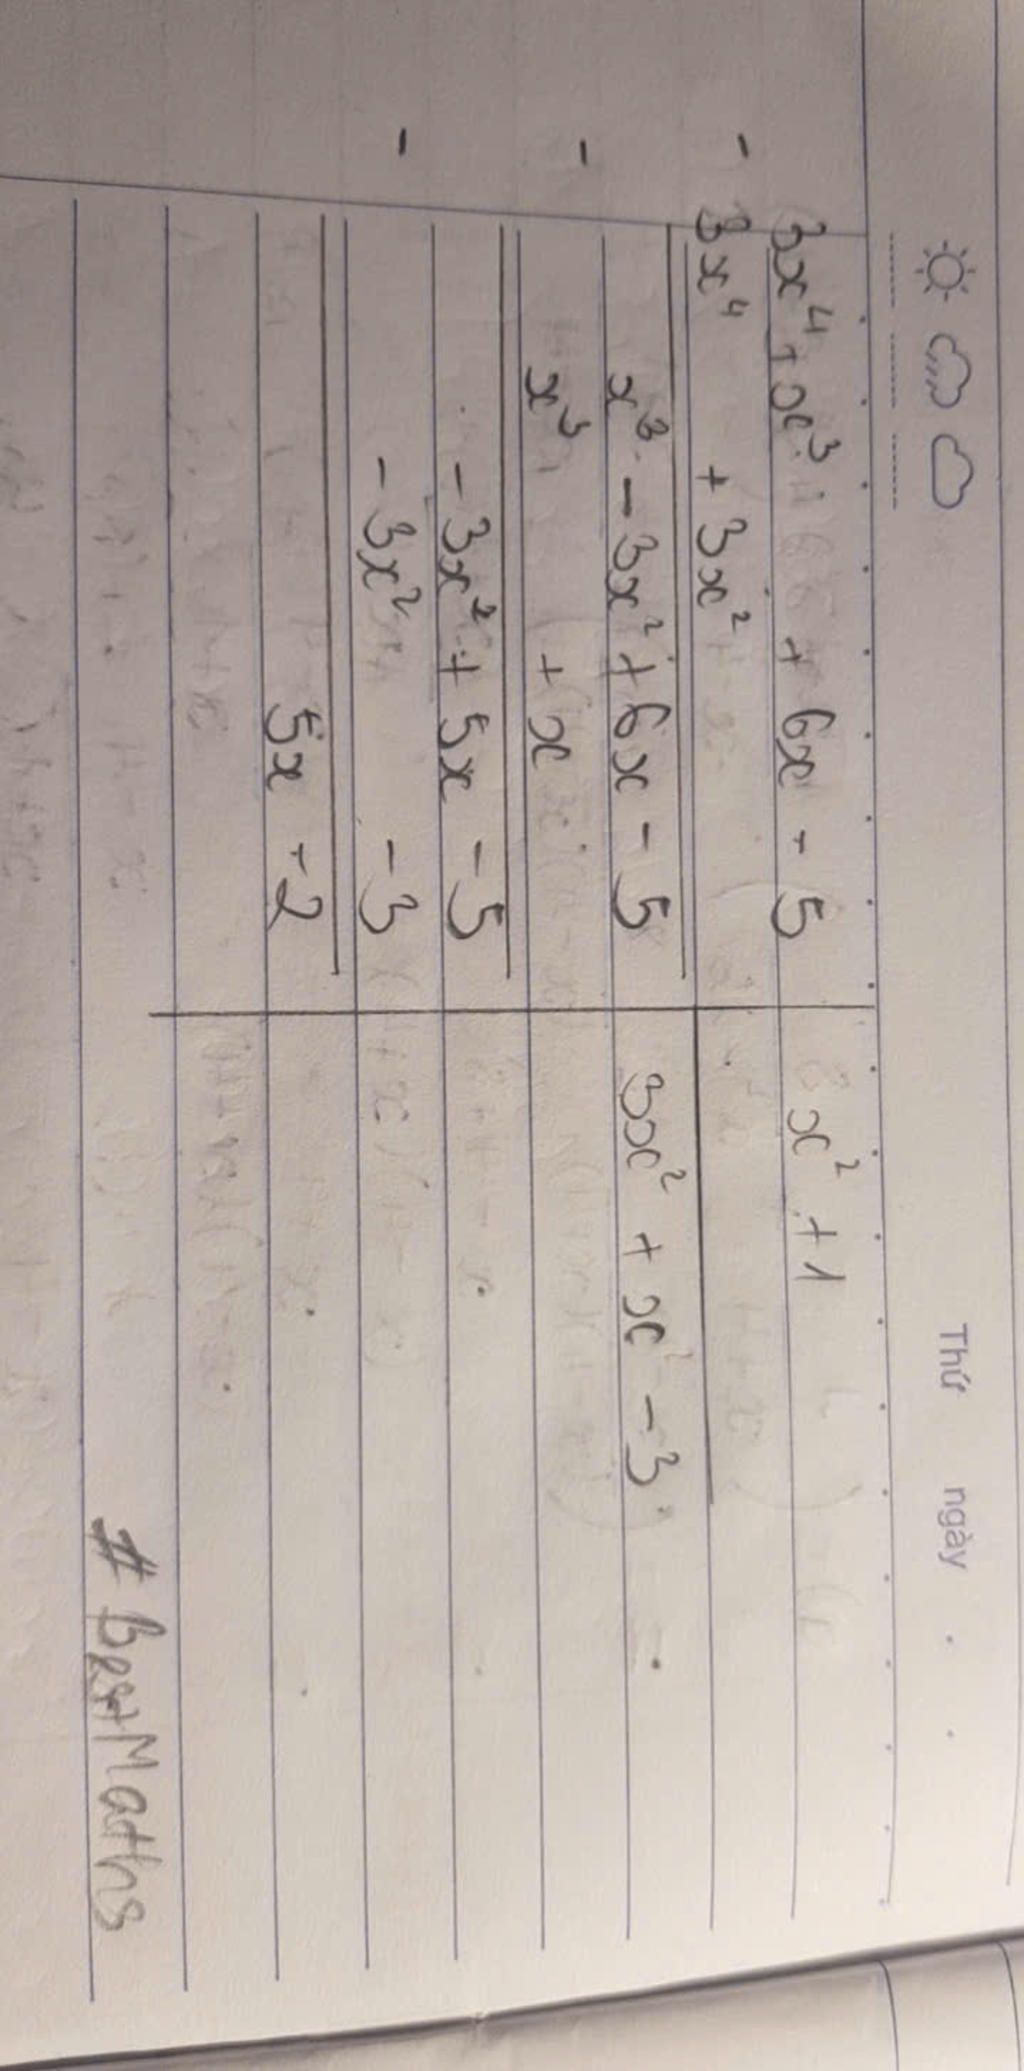 Thứ ngày
3x⁴ + x³ + 6x - 5 x² + 1
- 3x⁴ + 3x²
x³ - 3x² + 6x - 5 3x² + x - 3
- x³ + x
- 3x² + 5x - 5
- - 3x² - 3
5x - 2
# BestMaths